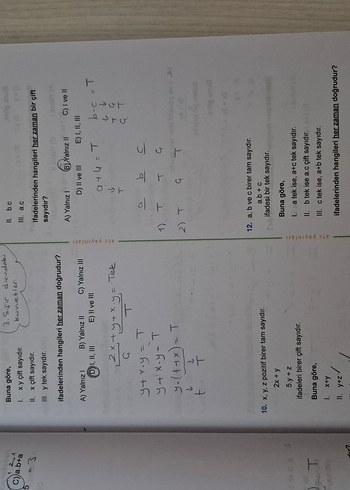 C) a.b+a
= 3
Buna göre,
I. x.y çift sayıdır.
II. x çift sayıdır.
III. y tek sayıdır.
ifadelerinden hangileri her zaman doğrudur?
A) Yalnız I B) Yalnız II C) Yalnız III
D) I, II, III E) II ve III
2x+y+x.y = Tek
Ç T
y+x.y = T
y+x.y = T
y.(1+x) = T
T T
10. x, y, z pozitif birer tam sayıdır.
2x + y
5y + z
ifadeleri birer çift sayıdır.
Buna göre,
I. x+y
II. y+z
II. b.c
III. a.c
ifadelerinden hangileri her zaman bir çift
sayıdır?
A) Yalnız I B) Yalnız II C) I ve II
D) II ve III E) I, II, III
a+4 = T b.c = T
a b c
1) T T Ç
2) T Ç T
12. a, b ve c birer tam sayıdır.
a.b + c
ifadesi bir tek sayıdır.
Buna göre,
I. a tek ise, a+c tek sayıdır.
II. b tek ise a.c çift sayıdır.
III. c tek ise, a+b tek sayıdır.
ifadelerinden hangileri her zaman doğrudur?